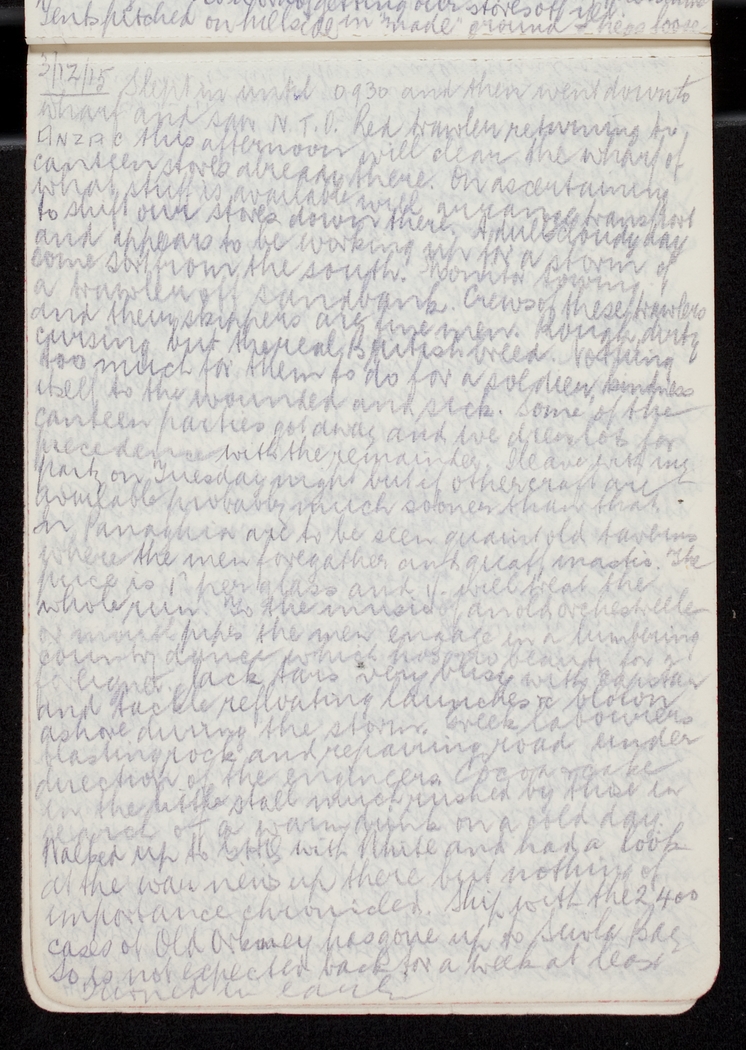 Tents pitched on hillside in "made" ground & very loose
3/12/15 Slept in until 0930 and then went down to
wharf and saw N.T.O. Red trawler returning to
ANZAC this afternoon will clear the wharf of
canteen stores already there. On ascertaining
what stuff is available will arrange transport
to shift our stores down there. A dull cloudy day
and appears to be working up for a storm of
some sort from the south. Monitor towing
a trawler off sandbank. Crews of these trawlers
and their skippers are fine men. Rough, dirty
cursing but the real British breed. Nothing
too much for them to do for a soldier, kindness
itself to the wounded and sick. Some of the
canteen parties got away and we drew lots for
precedence with the remainder. I leave with my
party on Tuesday night but if other craft are
available probably much sooner than that.
In Panaghia are to be seen quaint old taverns
where the men foregather and quaff mastic. The
price is 1d per glass and 1/- will treat the
whole run. To the music of an old orchestrelle
or mouth pipes the men engage in a lumbering
country dance which has no beauty for a
foreigner. Jack tars very busy with capstan
and tackle refloating launches &c blown
ashore during the storm. Greek labourers
blasting rock and repairing road under
direction of the engineers. Cocoa & cake
in the little stall much rushed by those in
search of a warm drink on a cold day.
Walked up to with White and had a look
at the war news up there but nothing of
importance chronicled. Ship with the 2,400
cases of Old Orkney has gone up to Suvla Bay
so is not expected back for a week at least
Turned in early